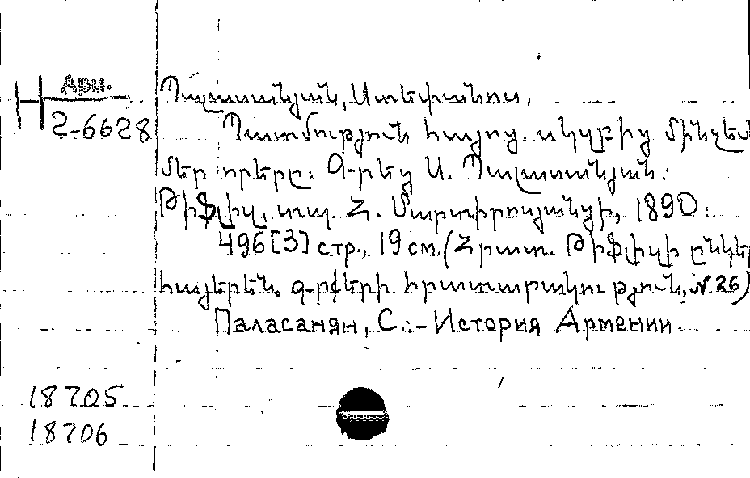 Арм.
2-6628
Պալասանյան, Ստեփանոս.
Պատմություն հայոց. սկզբից մինչեւ
մեր օրերը. Գրեց Ս. Պալասանյան.
Թիֆլիզ, տպ. Հ. Մարտիրոսյանցի, 1890.
496[3] стр., 19 см. (Հրատ. Թիֆլիսի ընկեր
հայերեն. գրքերի հրատարակություն, № 26)
Паласанян, С. - История Армении
18705
18706